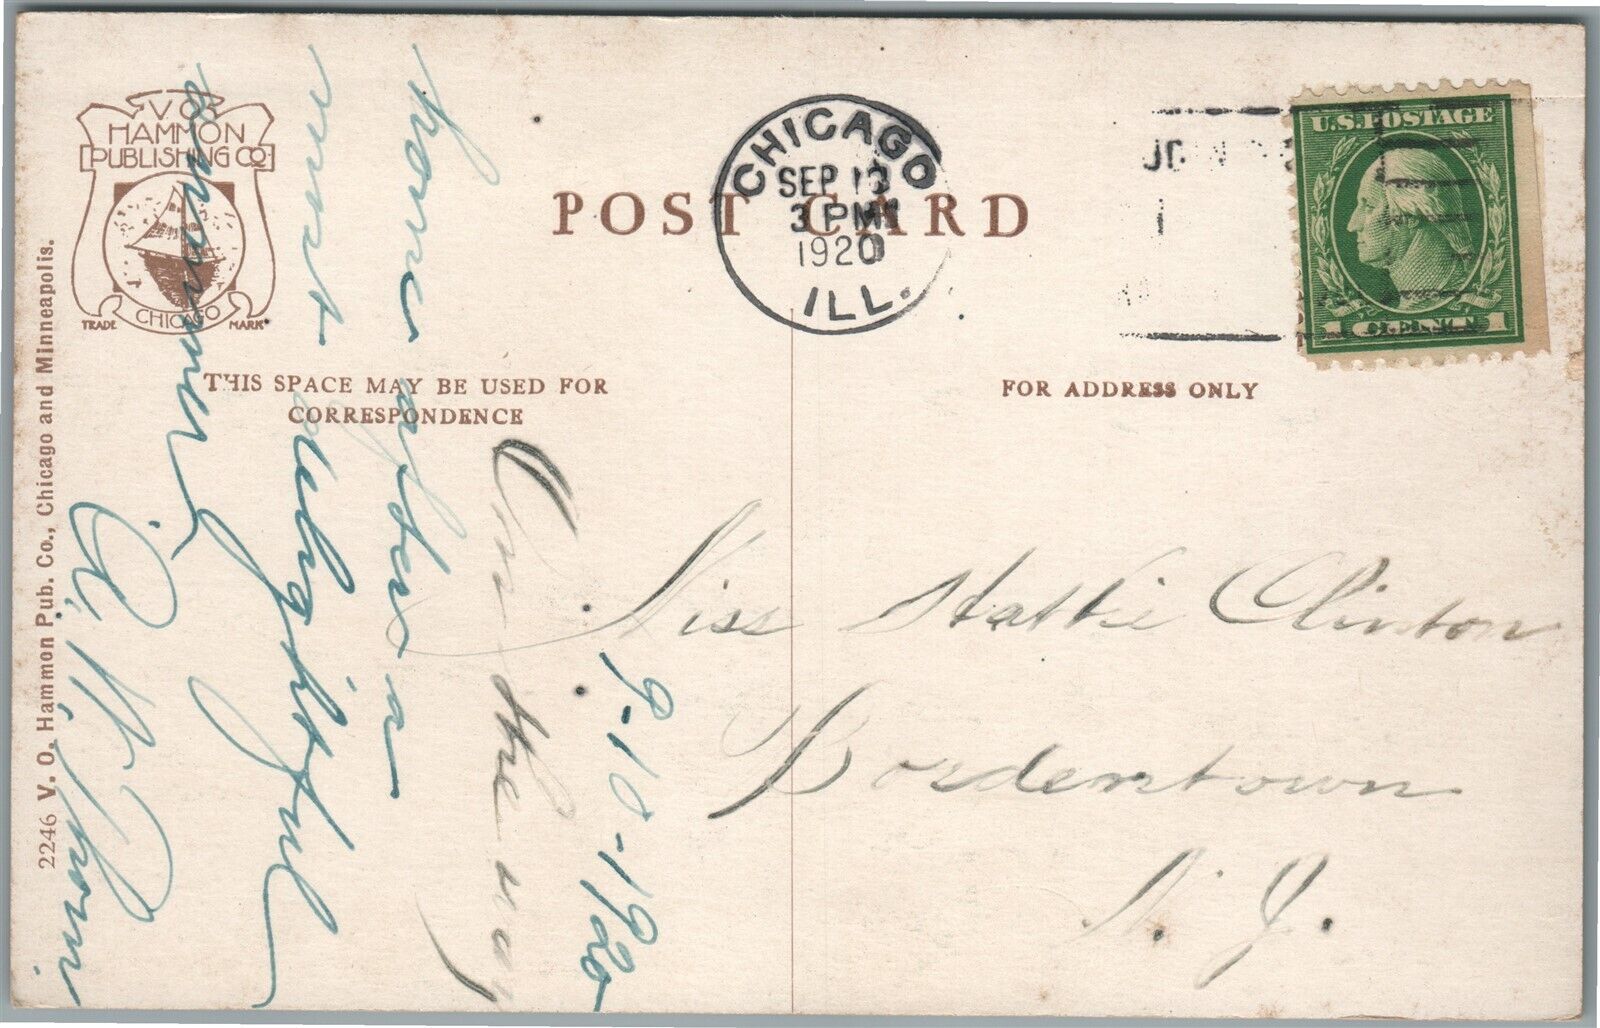 V O
HAMMON
PUBLISHING CO.
TRADE CHICAGO MARK
POST CARD
CHICAGO
SEP 13
3 PM
1920
ILL.
JOIN
U.S. POSTAGE
1 1
THIS SPACE MAY BE USED FOR
CORRESPONDENCE
FOR ADDRESS ONLY
2246 V. O. Hammon Pub. Co., Chicago and Minneapolis.
9-10-1920
On the way
home after a
most delightful
summer,
Miss Hattie Clinton
Bordentown
N. J.